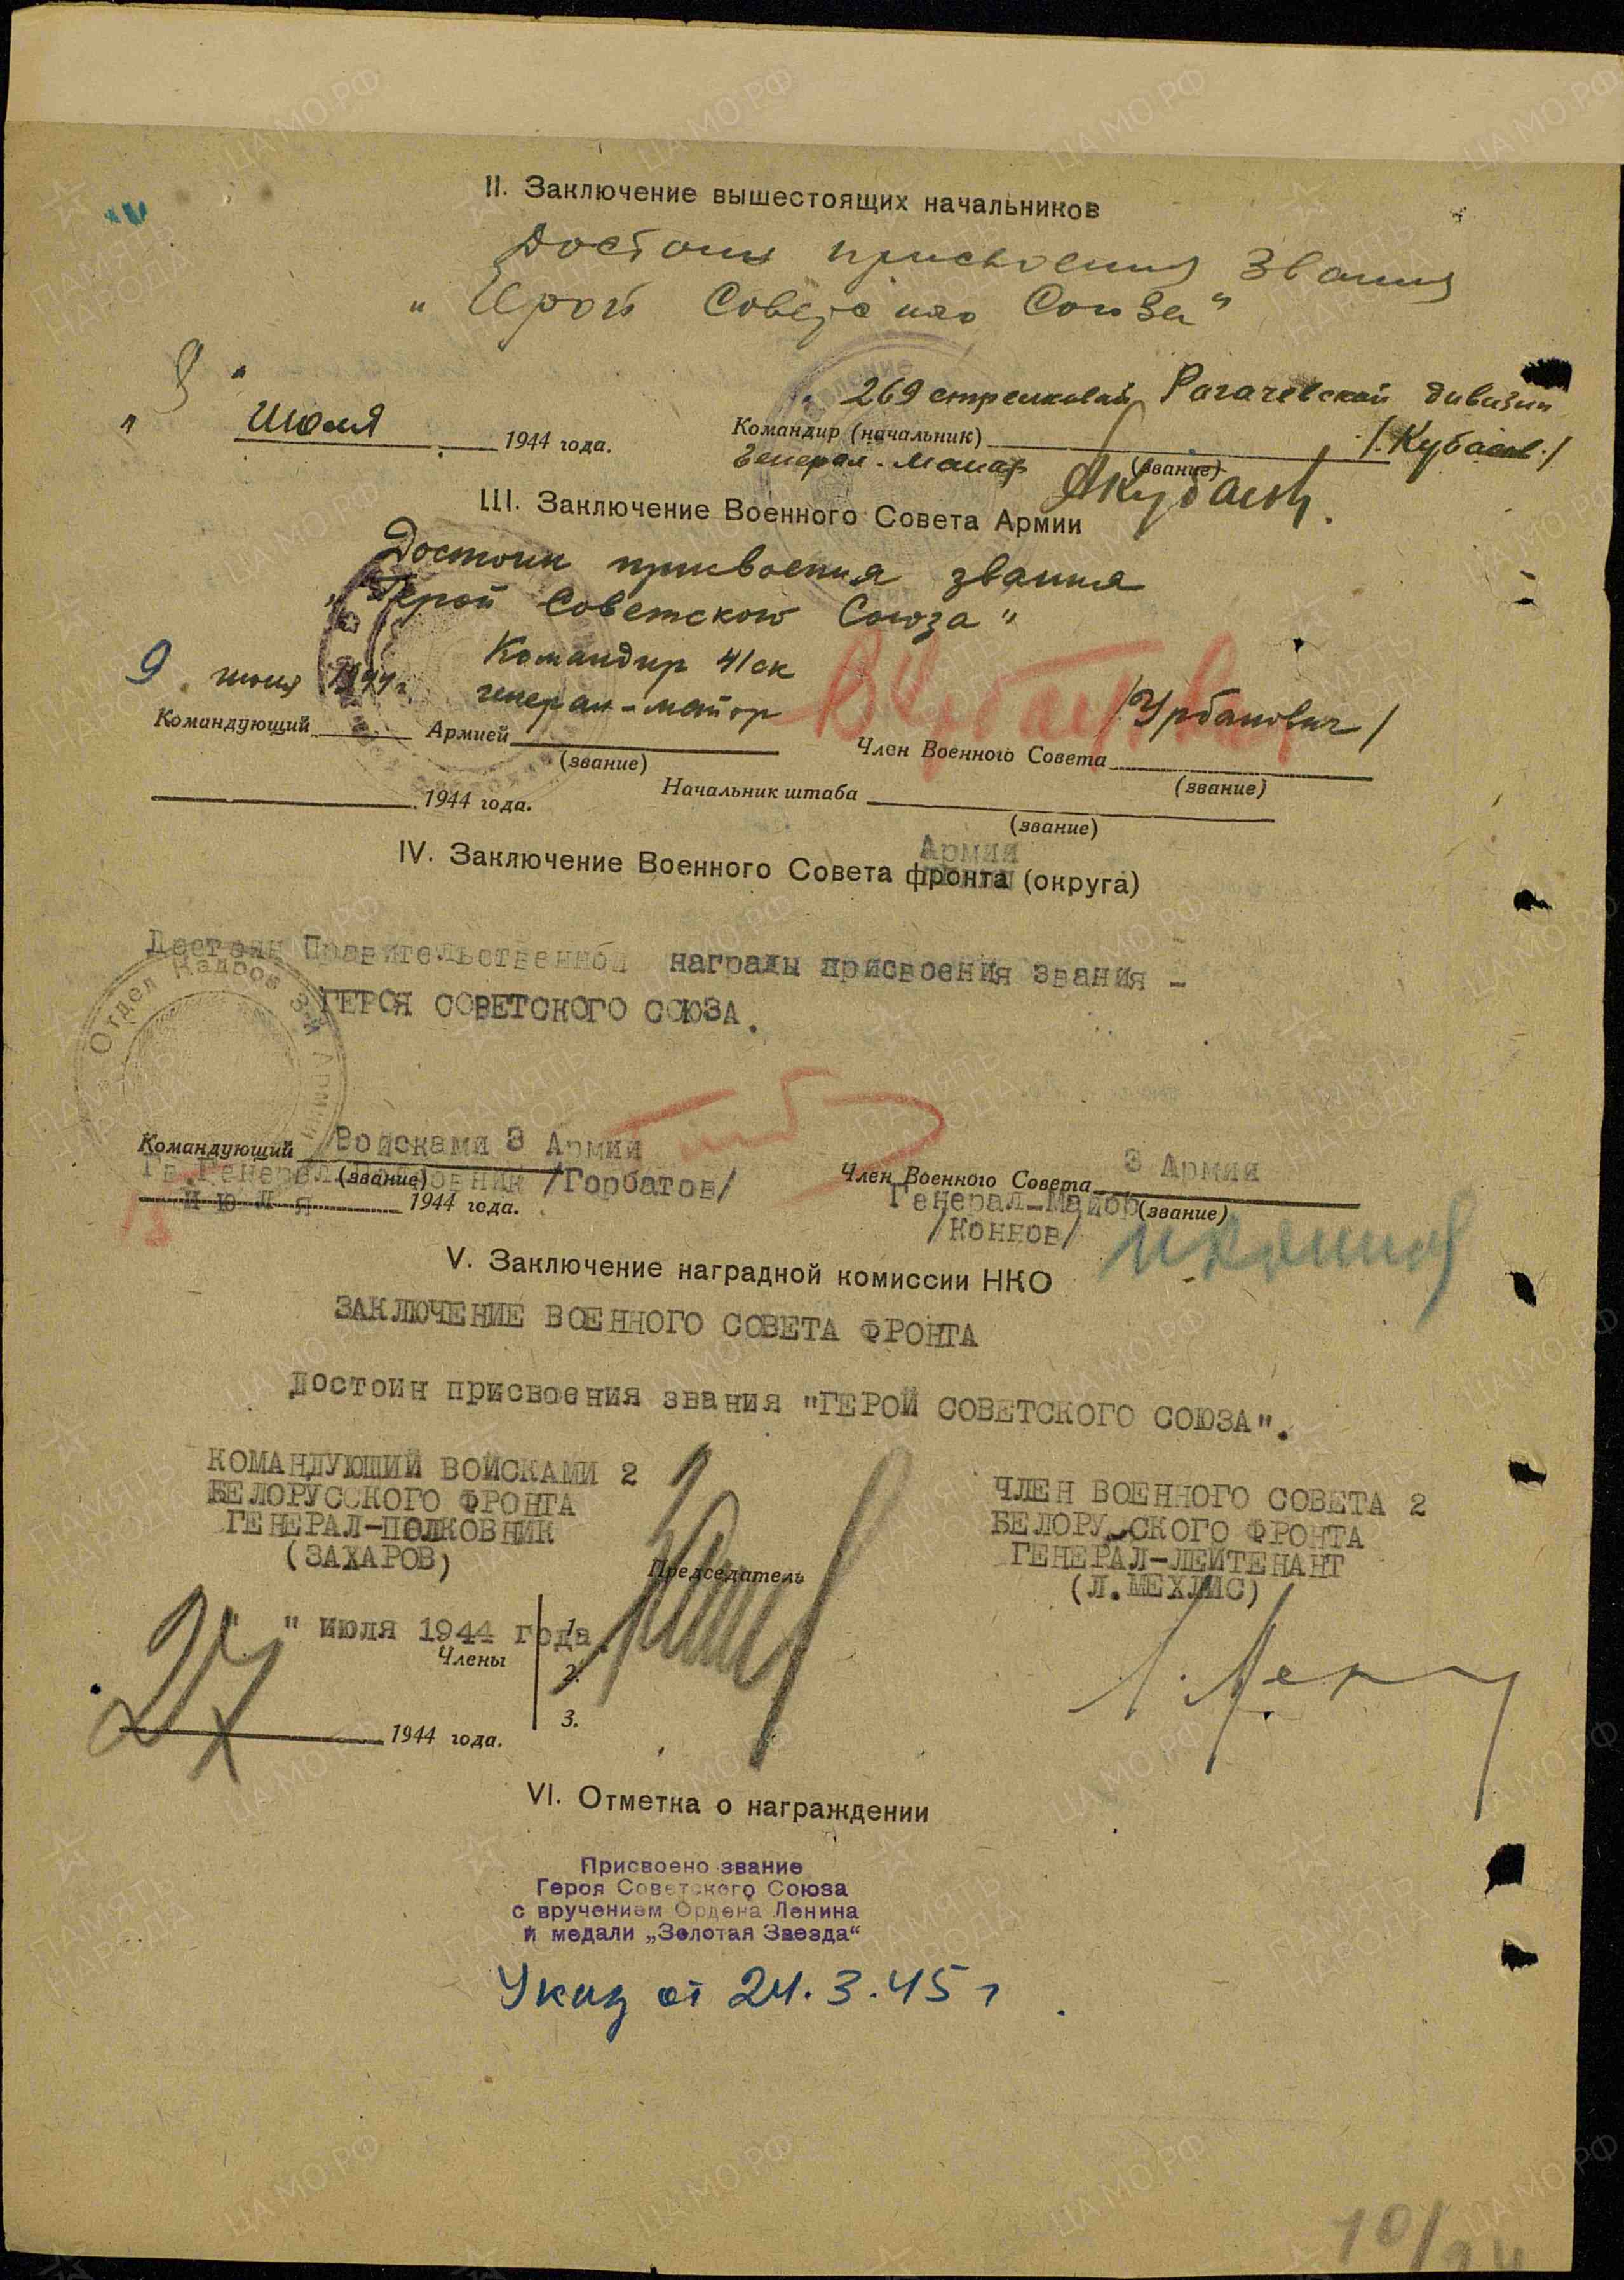 II. Заключение вышестоящих начальников
Достоин присвоения звания
"Герой Советского Союза"
269 стрелковой Рогачевской дивизии
" " июля 1944 года.
Командир (начальник) /Кубасов/
генерал-майор (звание)
III. Заключение Военного Совета Армии
Достоин присвоения звания
"Герой Советского Союза"
9 июля 1944 г. Командир 41 ск
генерал-майор /Урбанович/
Командующий Армией Член Военного Совета
(звание) (звание)
1944 года. Начальник штаба
(звание)
Армии
IV. Заключение Военного Совета фронта (округа)
Достоин Правительственной награды присвоения звания -
ГЕРОЯ СОВЕТСКОГО СОЮЗА.
Отдел Кадров 3-й Армии
Командующий Войсками 3 Армии
Гв.Генерал полковник (звание) /Горбатов/
июля 1944 года.
Член Военного Совета 3 Армии
Генерал-Майор (звание)
/Коннов/
V. Заключение наградной комиссии НКО
ЗАКЛЮЧЕНИЕ ВОЕННОГО СОВЕТА ФРОНТА
Достоин присвоения звания "ГЕРОЙ СОВЕТСКОГО СОЮЗА".
КОМАНДУЮЩИЙ ВОЙСКАМИ 2
БЕЛОРУССКОГО ФРОНТА
ГЕНЕРАЛ-ПОЛКОВНИК
(ЗАХАРОВ)
ЧЛЕН ВОЕННОГО СОВЕТА 2
БЕЛОРУССКОГО ФРОНТА
ГЕНЕРАЛ-ЛЕЙТЕНАНТ
(Л.МЕХЛИС)
Председатель
" " июля 1944 года.
Члены
1.
2.
3.
1944 года.
VI. Отметка о награждении
Присвоено звание
Героя Советского Союза
с вручением Ордена Ленина
и медали „Золотая Звезда“
Указ от 24.3.45 г
ПАМЯТЬ НАРОДА
ЦАМО.РФ